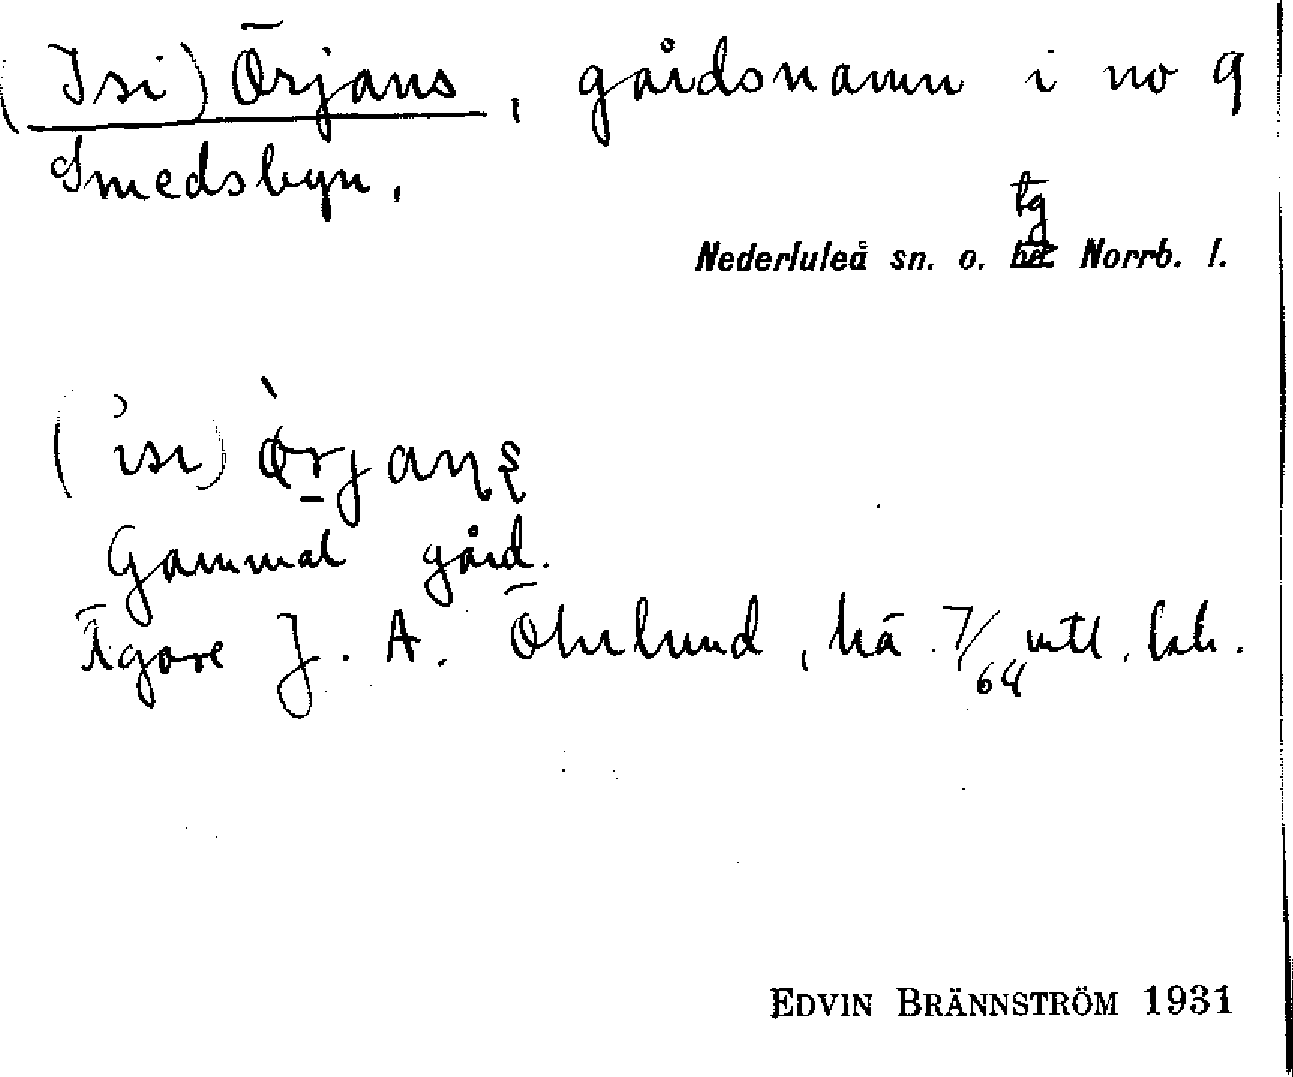 (Isi) Örjans, gårdsnamn i no 9
Smedsbyn.
tg
Nederluleå sn. o. Norrb. l.
(isi) örjans
Gammal gård.
Ägare J. A. Öhrlund, hä. 7/64 mtl.
EDVIN BRÄNNSTRÖM 1931